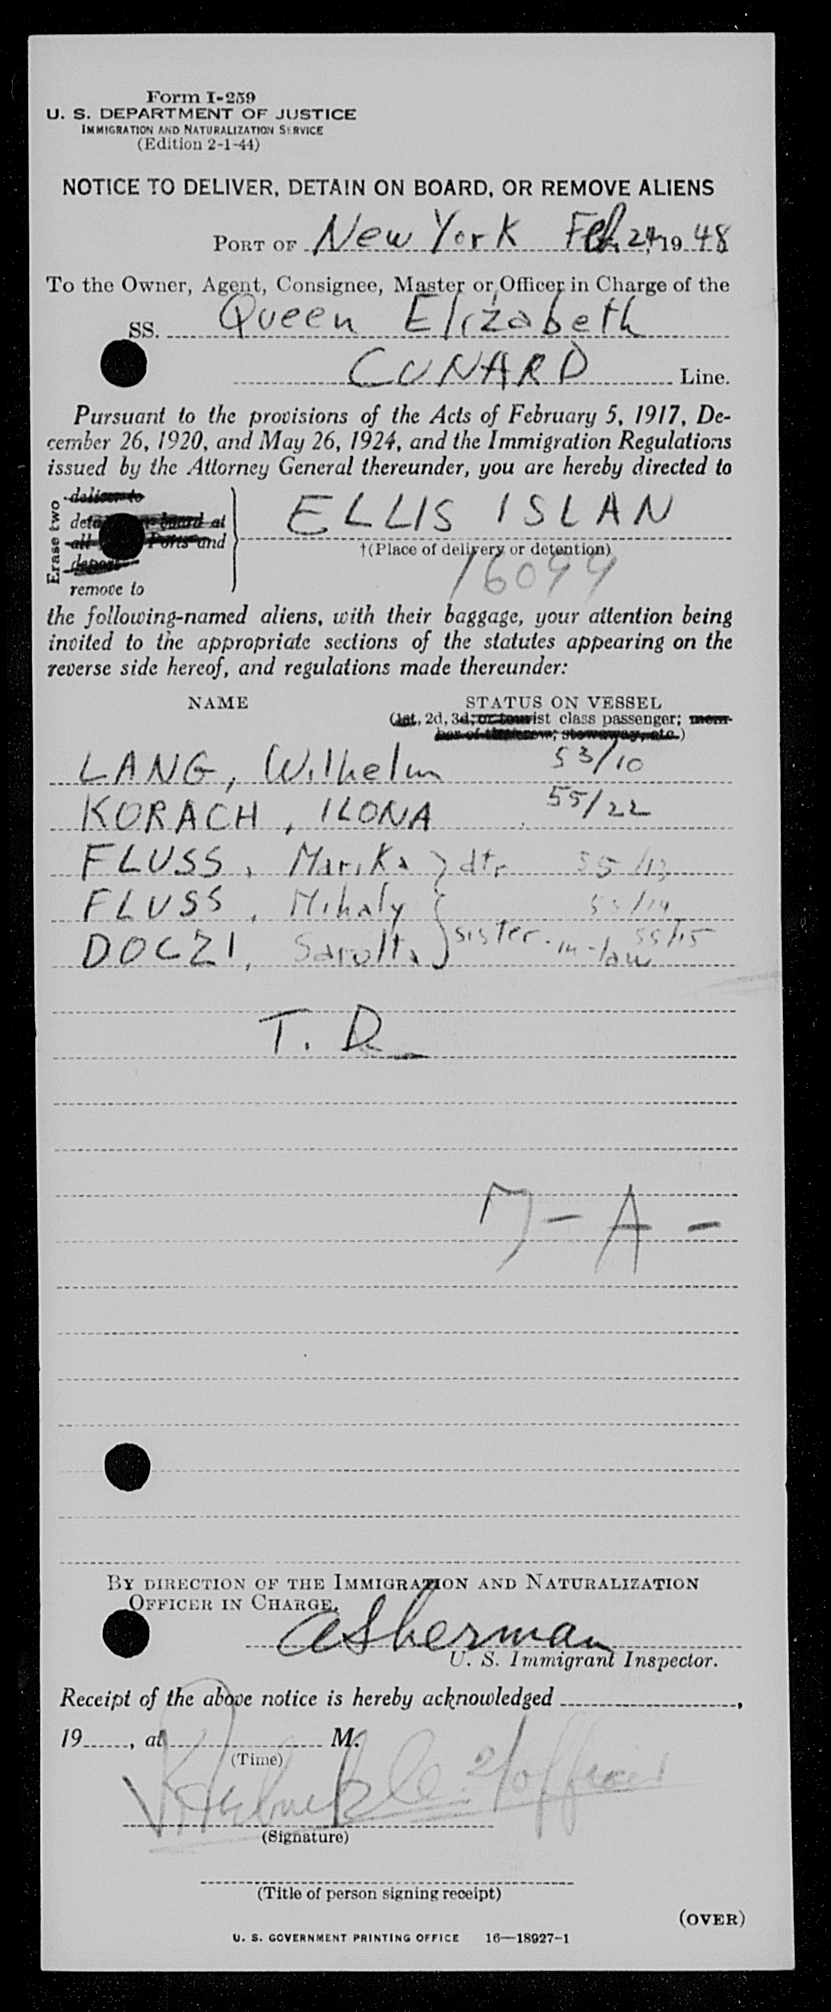 Form I-259
U. S. DEPARTMENT OF JUSTICE
IMMIGRATION AND NATURALIZATION SERVICE
(Edition 2-1-44)
NOTICE TO DELIVER, DETAIN ON BOARD, OR REMOVE ALIENS
PORT OF New York Feb. 24, 1948
To the Owner, Agent, Consignee, Master or Officer in Charge of the
SS. Queen Elizabeth
CUNARD Line.
Pursuant to the provisions of the Acts of February 5, 1917, De-
cember 26, 1920, and May 26, 1924, and the Immigration Regulations
issued by the Attorney General thereunder, you are hereby directed to
Erase two
deliver to
detain on board at
all Ports and
deport
remove to
ELLIS ISLAN
†(Place of delivery or detention)
16099
the following-named aliens, with their baggage, your attention being
invited to the appropriate sections of the statutes appearing on the
reverse side hereof, and regulations made thereunder:
NAME STATUS ON VESSEL
(1st, 2d, 3d, or tourist class passenger; mem-
ber of the crew; stowaway, etc.)
LANG, Wilhelm 53/10
KORACH, ILONA 55/22
FLUSS, Marika } dtr 55/13
FLUSS, Mihaly 55/14
DOCZI, Sarolta } sister-in-law 55/15
T. D.
M - A -
BY DIRECTION OF THE IMMIGRATION AND NATURALIZATION
OFFICER IN CHARGE.
A Sherman
U. S. Immigrant Inspector.
Receipt of the above notice is hereby acknowledged ,
19 , at M.
(Time)
2/officer
(Signature)
(Title of person signing receipt)
(OVER)
U. S. GOVERNMENT PRINTING OFFICE 16—18927-1